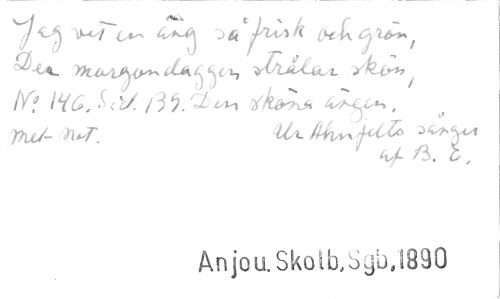 Jag vet en äng så frisk och grön,
Der morgondaggen strålar skön,
No 146. Sid. 139. Den sköna ängen.
met not. Ur Ahnfelts sånger
af B. E.
Anjou. Skolb, Sgb, 1890